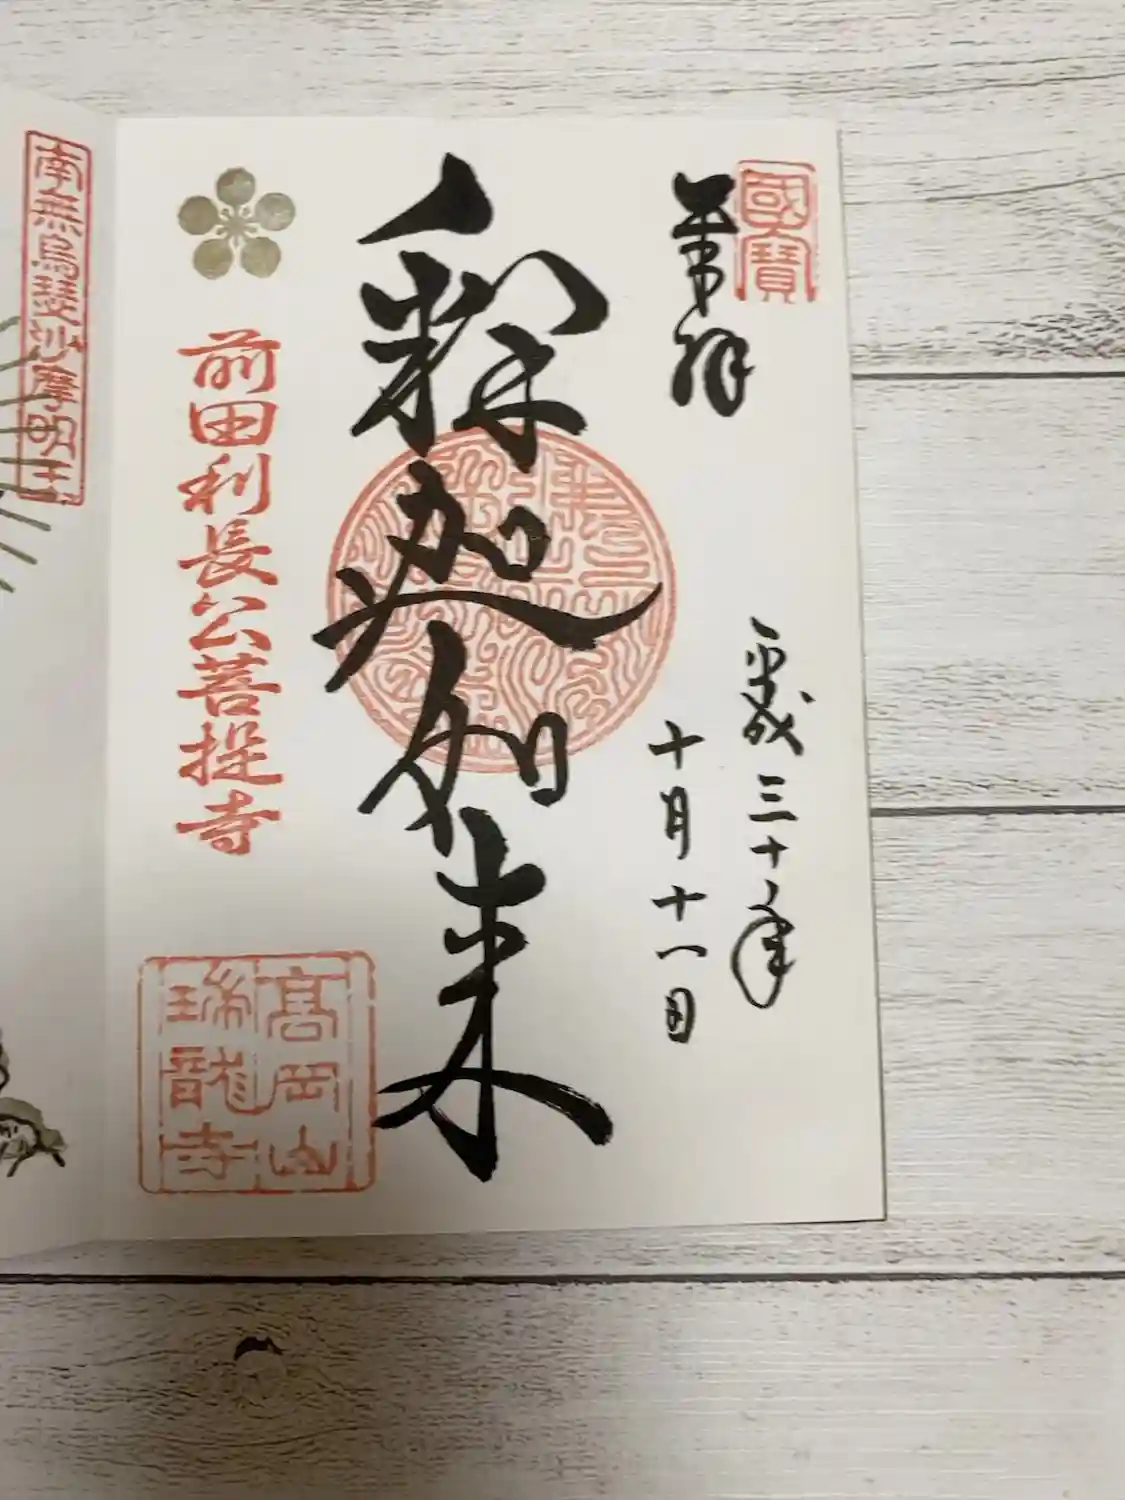 國寶
奉拝
平成三十年
十月十一日
釋迦如来
前田利長公菩提寺
高岡山
瑞龍寺
南無烏瑟沙摩明王